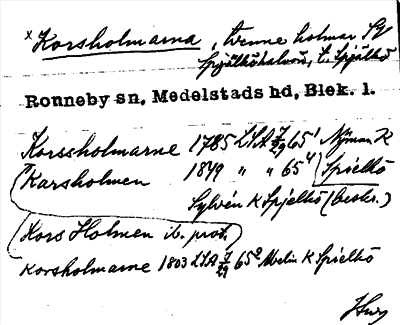 x Korsholmarna, tvenne holmar Sv
Spjälköhalvö, t. Spjälkö
Ronneby sn, Medelstads hd, Blek. l.
Korssholmarne 1785 LSA 7/29 65¹ Nyman K
Karsholmen 1849 " " 65⁴ Spielkö
Sylvén K Spjelkö (beskr.)
Kors Holmen ib. prot.
Korsholmarne 1803 LSA 7/29 65² Melin K Spielkö